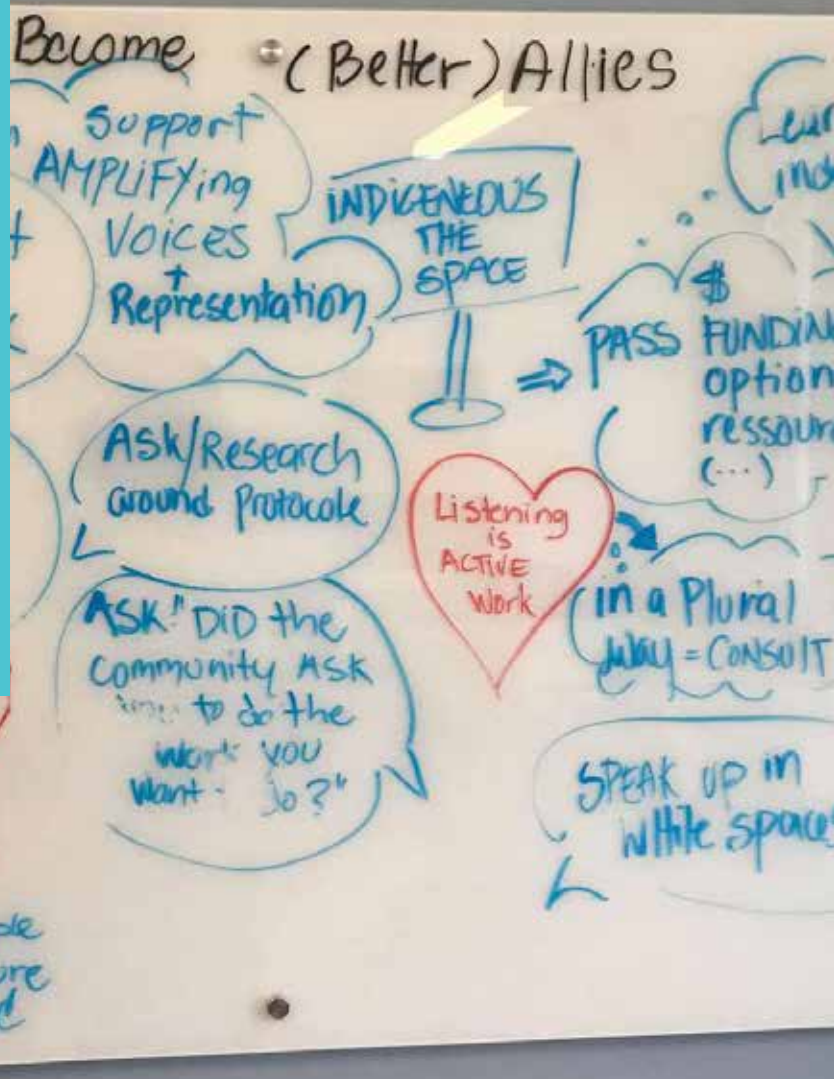 Become (Better) Allies
Support
AMPLiFYing
VOiCES
+
Representation
iNDiGENEOUS
THE
SPACE
$
PASS FUNDiN
option
ressour
(...)
Ask/Research
around Protocole
Listening
is
ACTIVE
Work
in a Plural
Way = CONSUlT
ASK "DiD the
community ASK
to do the
work you
want
SPEAK UP in
white spaces